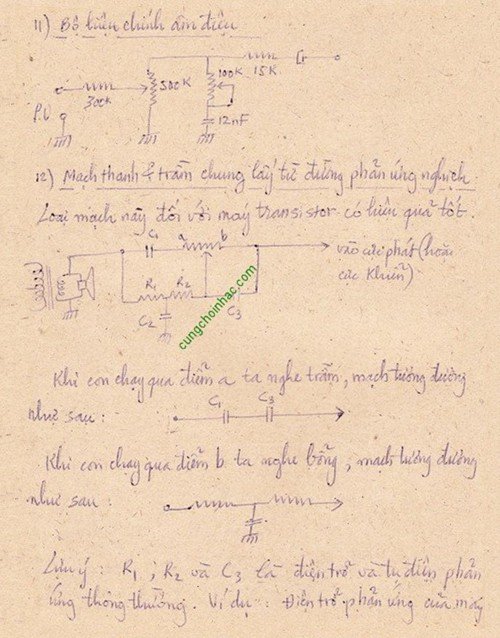 11) Bộ hiệu chỉnh âm điệu
100K
15K
500K
300K
P.U
12nF
12) Mạch thanh & trầm chung lấy từ đường phản ứng nghịch.
Loại mạch này đối với máy transistor có hiệu quả tốt.
C1 a b
vào cực phát (hoặc
cực khiển)
R1 R2
C2 C3
cungchoinhac.com
Khi con chạy qua điểm a ta nghe trầm, mạch tương đương
như sau: C1 C3
Khi con chạy qua điểm b ta nghe bổng, mạch tương đương
như sau:
Lưu ý: R1, R2 và C3 là điện trở và tụ điện phản
ứng thông thường. Ví dụ: Điện trở phản ứng của máy